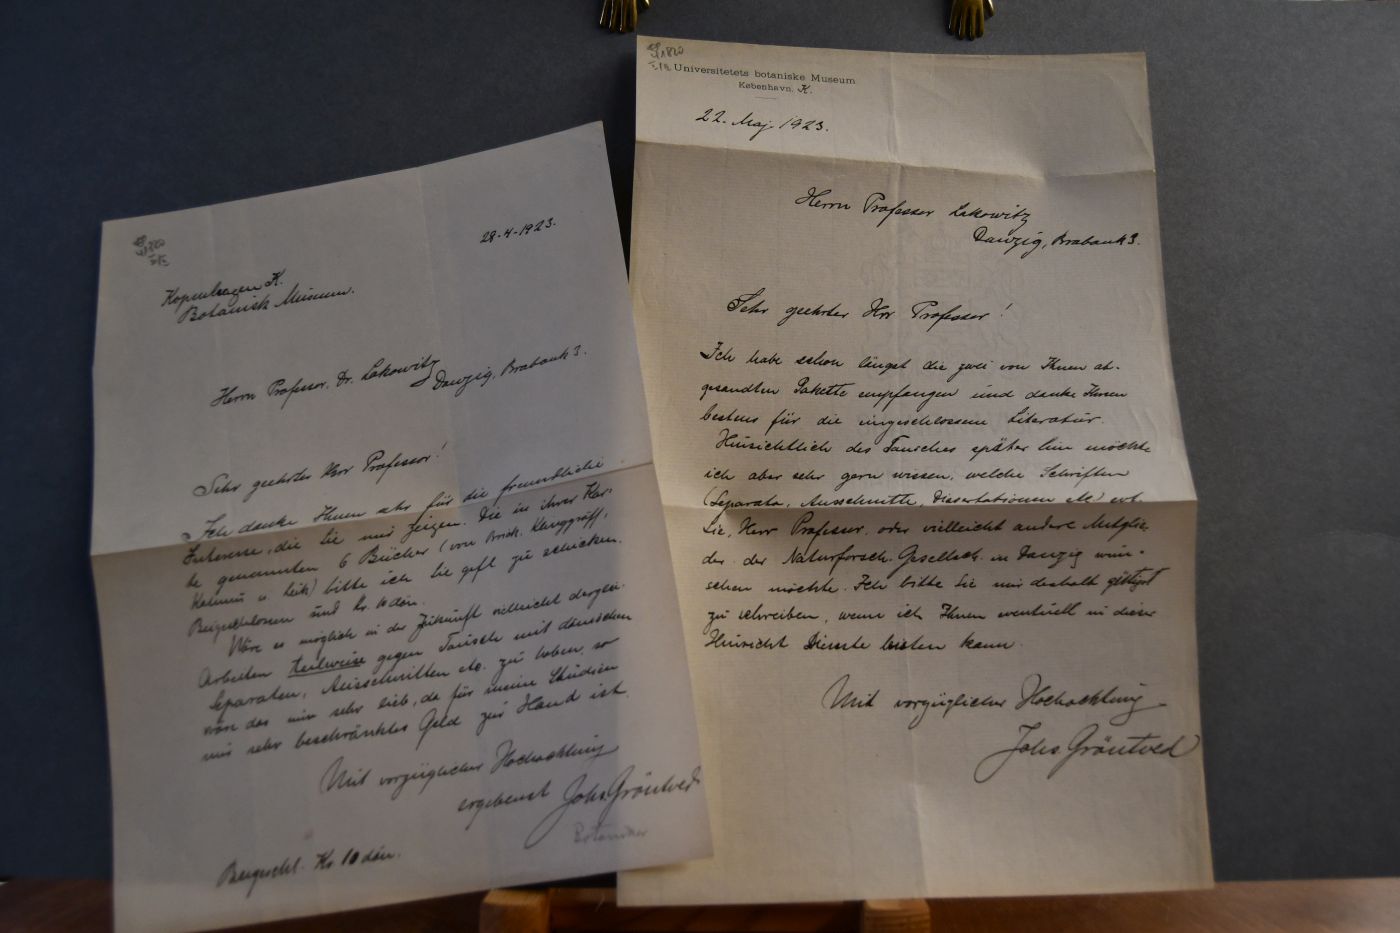 28-4-1923.
Kopenhagen K.
Botanisk Museum.
Herrn Professor. Dr. Lakowitz
Danzig, Brabank 3.
Sehr geehrter Herr Professor!
Ich danke Ihnen sehr für die freundliche
Interesse, die Sie mir zeigen. Die in ihrer Kar-
te genannten 6 Bücher (von Brick, Klinggräff,
Kalmus u. ) bitte ich Sie gefl zu schicken.
Beigeschlossen sind Kr. 10 dän.
Wäre es möglich in der Zukunft vielleicht derglei-
Arbeiten teilweise gegen Tausch mit dänischen
Separaten, Ausschnitten etc. zu haben, so
wäre das mir sehr lieb, da für meine Studien
nur sehr beschränktes Geld zur Hand ist.
Mit vorzüglicher Hochachtung
ergebenst Johs. Gröntved
Botaniker
Beigeschl. Kr 10 dän.
Universitetets botaniske Museum
København. K.
22. Maj 1923.
Herrn Professor Lakowitz
Danzig, Brabank 3.
Sehr geehrter Herr Professor!
Ich habe schon längst die zwei von Ihnen ab-
gesandten Pakette empfangen und danke Ihnen
bestens für die eingeschlossene Literatur.
Hinsichtlich des Tausches später hin möchte
ich aber sehr gern wissen, welche Schriften
(Separata, Ausschnitte, Dissertationen etc) evt.
Sie, Herr Professor, oder vielleicht andere Mitglie-
der der Naturforsch. Gesellsch. in Danzig wün-
schen möchte. Ich bitte Sie mir deshalb gütigst
zu schreiben, wenn ich Ihnen eventuell in dieser
Hinsicht Dienste leisten kann.
Mit vorzüglicher Hochachtung
Johs. Gröntved